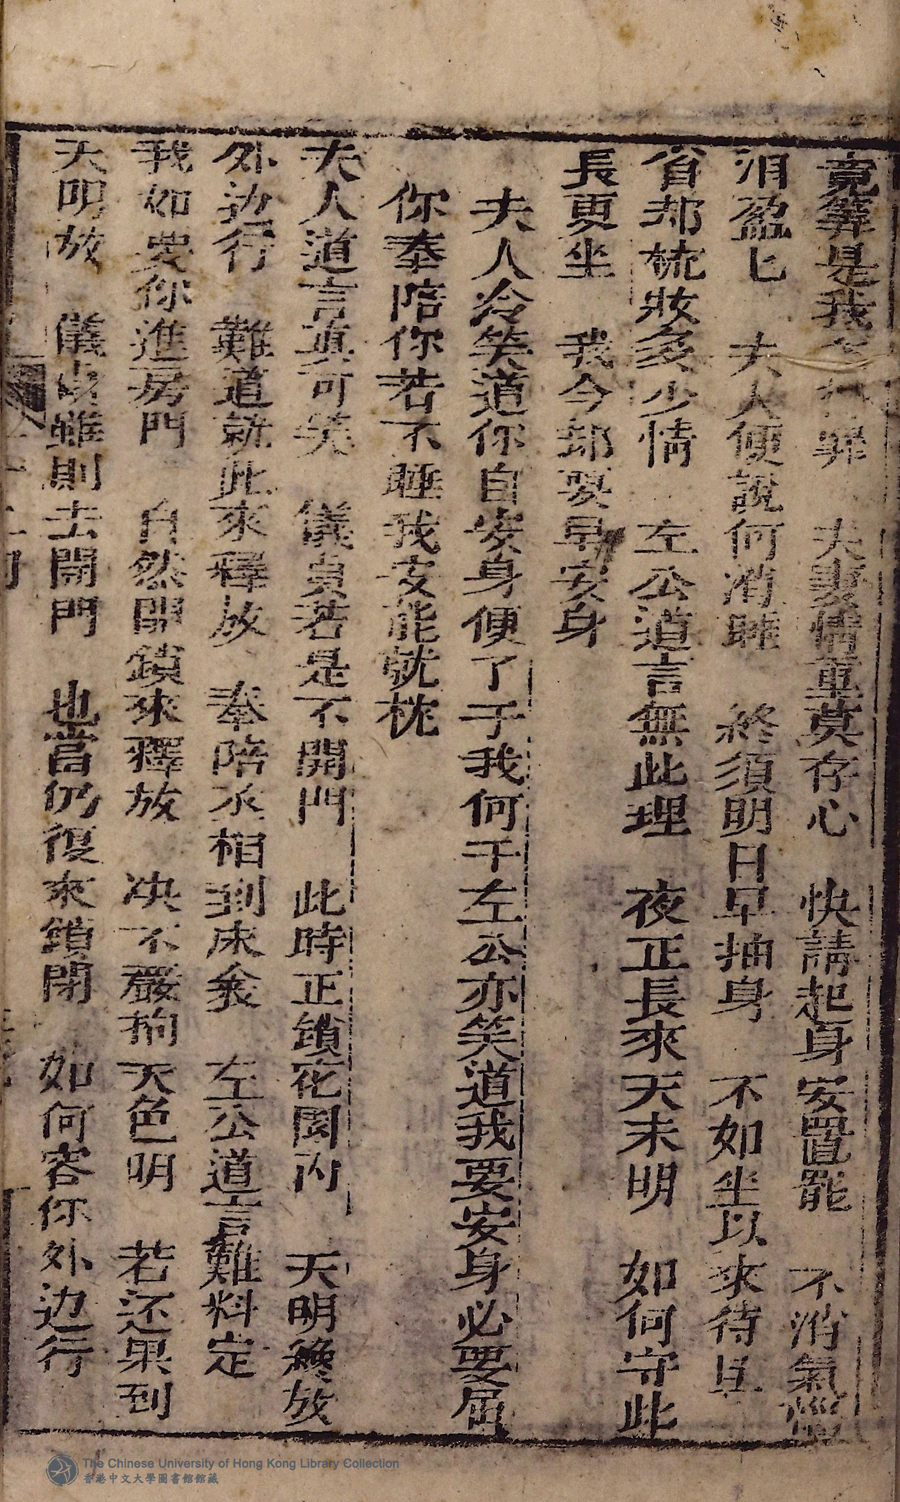 竟算是我之罪　夫妻情重莫存心　快請起身安置罷　不消氣惱
泪盈匕　夫人便說何消睡　終須明日早抽身　不如坐以來待旦
省却梳妝多少情　左公道言無此理　夜正長來天未明　如何守此
長更坐　我今却要早安身
夫人冷笑道你自安身便了于我何干左公亦笑道我要安身必要屈
你奉陪你若不睡我豈能就枕
夫人道言真可笑　儀貞若是不開門　此時正鎖花園內　天明纔放
外边行　難道就此來釋放　奉陪丞相到床衾　左公道言難料定
我如要你進房門　自然開鎖來釋放　决不嚴拘天色明　若还果到
天明放　儀貞雖則去開門　也當仍復來鎖閉　如何容你外边行
The Chinese University of Hong Kong Library Collection
香港中文大學圖書館館藏